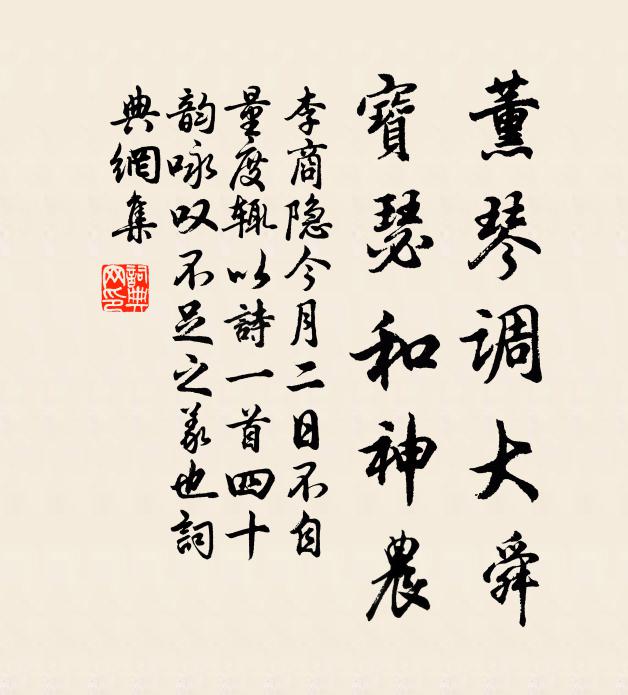 薰琴调大舜
寶瑟和神農
李商隐今月二日不自
量度輒以詩一首四十
韵咏叹不足之義也詞
典網集
詞典
网印